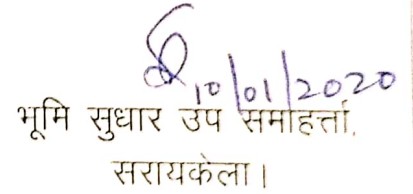 10/01/2020
भूमि सुधार उप समाहर्त्ता,
सरायकेला।